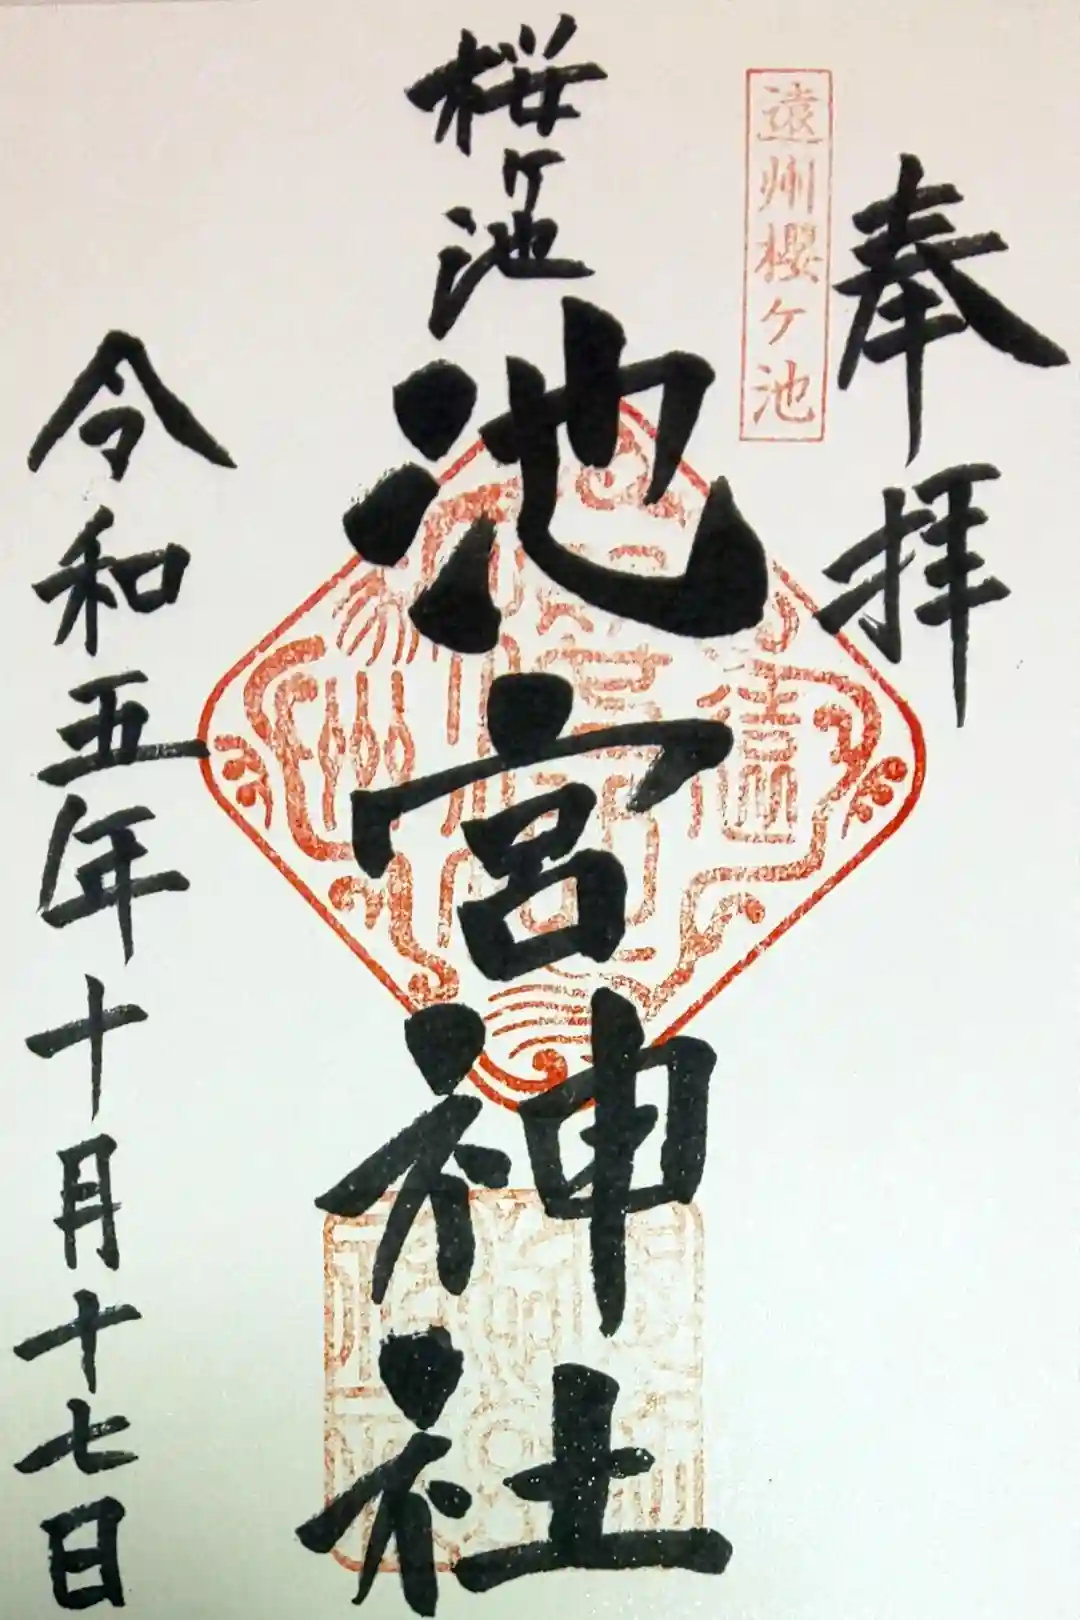 奉拝
遠州櫻ヶ池
桜ヶ池
池宮神社
令和五年十月十七日